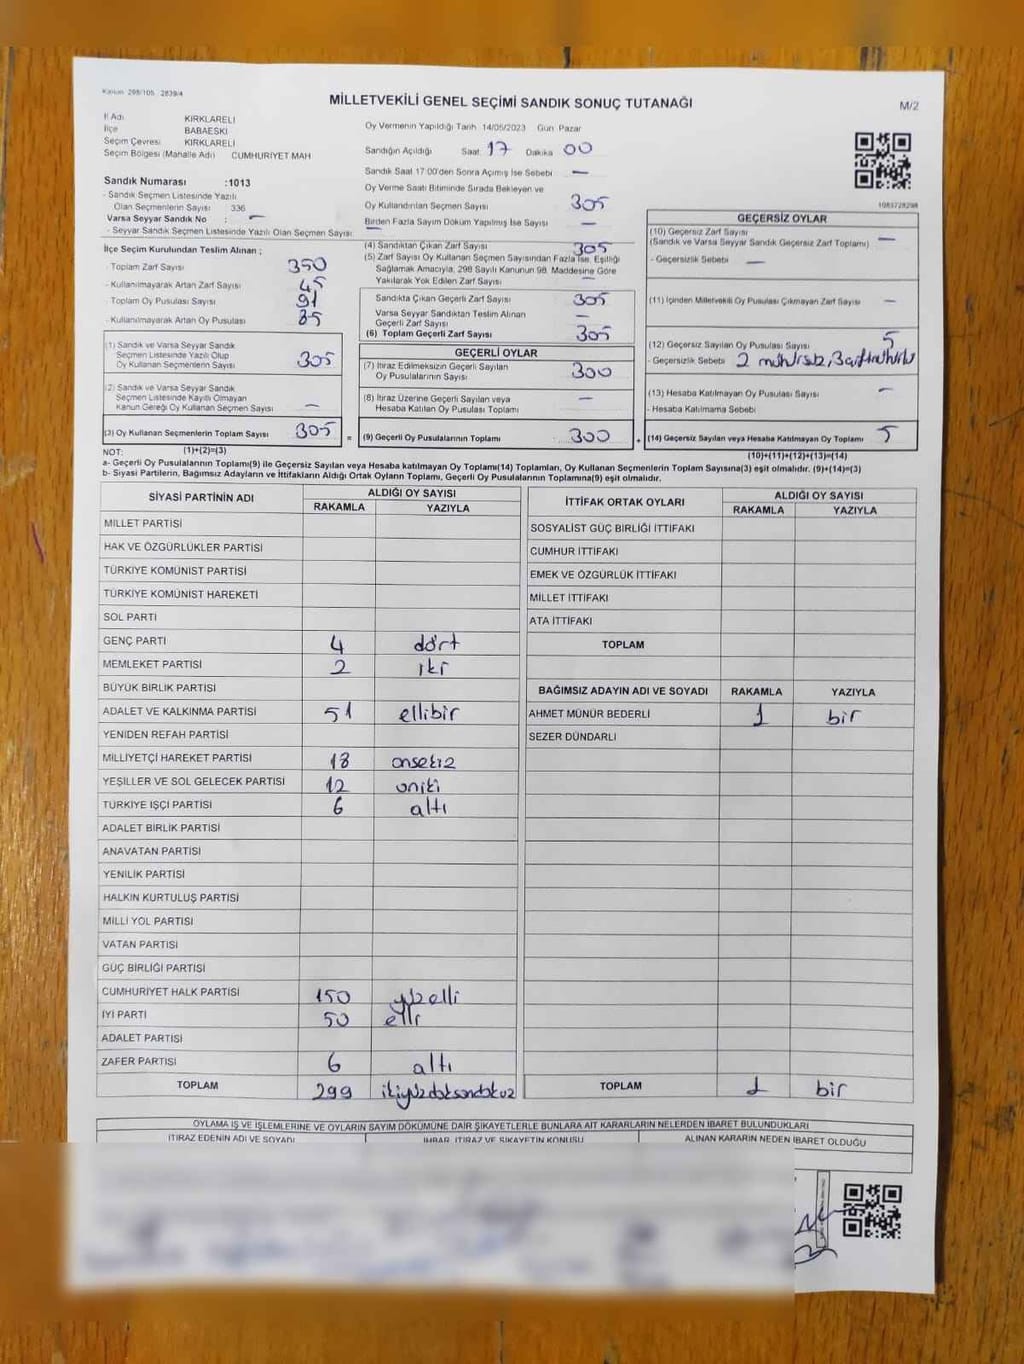 Kanun 298/105 2839/4
MİLLETVEKİLİ GENEL SEÇİMİ SANDIK SONUÇ TUTANAĞI
M/2
İl Adı KIRKLARELİ
İlçe BABAESKİ
Seçim Çevresi KIRKLARELİ
Seçim Bölgesi (Mahalle Adı) CUMHURİYET MAH
Sandık Numarası :1013
- Sandık Seçmen Listesinde Yazılı
Olan Seçmenlerin Sayısı 336
Varsa Seyyar Sandık No : —
- Seyyar Sandık Seçmen Listesinde Yazılı Olan Seçmen Sayısı: —
Oy Vermenin Yapıldığı Tarih 14/05/2023 Gün Pazar
Sandığın Açıldığı Saat 17 Dakika 00
Sandık Saat 17 00'den Sonra Açılmış İse Sebebi —
Oy Verme Saati Bitiminde Sırada Bekleyen ve
Oy Kullandırılan Seçmen Sayısı 305
Birden Fazla Sayım Döküm Yapılmış İse Sayısı —
1083728298
İlçe Seçim Kurulundan Teslim Alınan ;
- Toplam Zarf Sayısı 350
- Kullanılmayarak Artan Zarf Sayısı 45
- Toplam Oy Pusulası Sayısı
- Kullanılmayarak Artan Oy Pusulası
(1) Sandık ve Varsa Seyyar Sandık
Seçmen Listesinde Yazılı Olup
Oy Kullanan Seçmenlerin Sayısı 305
(2) Sandık ve Varsa Seyyar Sandık
Seçmen Listesinde Kayıtlı Olmayan
Kanun Gereği Oy Kullanan Seçmen Sayısı —
(3) Oy Kullanan Seçmenlerin Toplam Sayısı 305
(4) Sandıktan Çıkan Zarf Sayısı 305
(5) Zarf Sayısı Oy Kullanan Seçmen Sayısından Fazla İse, Eşitliği
Sağlamak Amacıyla, 298 Sayılı Kanunun 98. Maddesine Göre
Yakılarak Yok Edilen Zarf Sayısı —
Sandıkta Çıkan Geçerli Zarf Sayısı 305
Varsa Seyyar Sandıktan Teslim Alınan
Geçerli Zarf Sayısı —
(6) Toplam Geçerli Zarf Sayısı 305
GEÇERLİ OYLAR
(7) İtiraz Edilmeksizin Geçerli Sayılan
Oy Pusulalarının Sayısı 300
(8) İtiraz Üzerine Geçerli Sayılan veya
Hesaba Katılan Oy Pusulası Toplamı —
= (9) Geçerli Oy Pusulalarının Toplamı 300
GEÇERSİZ OYLAR
(10) Geçersiz Zarf Sayısı
(Sandık ve Varsa Seyyar Sandık Geçersiz Zarf Toplamı) —
- Geçersizlik Sebebi —
(11) İçinden Milletvekili Oy Pusulası Çıkmayan Zarf Sayısı —
(12) Geçersiz Sayılan Oy Pusulası Sayısı 5
- Geçersizlik Sebebi 2 mühürsüz, 3
(13) Hesaba Katılmayan Oy Pusulası Sayısı —
- Hesaba Katılmama Sebebi
+ (14) Geçersiz Sayılan veya Hesaba Katılmayan Oy Toplamı 5
NOT: (1)+(2)=(3) (10)+(11)+(12)+(13)=(14)
a- Geçerli Oy Pusulalarının Toplamı(9) ile Geçersiz Sayılan veya Hesaba katılmayan Oy Toplamı(14) Toplamları, Oy Kullanan Seçmenlerin Toplam Sayısına(3) eşit olmalıdır. (9)+(14)=(3)
b- Siyasi Partilerin, Bağımsız Adayların ve İttifakların Aldığı Ortak Oyların Toplamı, Geçerli Oy Pusulalarının Toplamına(9) eşit olmalıdır.
SİYASİ PARTİNİN ADI ALDIĞI OY SAYISI
RAKAMLA YAZIYLA
MİLLET PARTİSİ
HAK VE ÖZGÜRLÜKLER PARTİSİ
TÜRKİYE KOMÜNİST PARTİSİ
TÜRKİYE KOMÜNİST HAREKETİ
SOL PARTİ
GENÇ PARTİ 4 dört
MEMLEKET PARTİSİ 2 iki
BÜYÜK BİRLİK PARTİSİ
ADALET VE KALKINMA PARTİSİ 51 ellibir
YENİDEN REFAH PARTİSİ
MİLLİYETÇİ HAREKET PARTİSİ 18 onsekiz
YEŞİLLER VE SOL GELECEK PARTİSİ 12 oniki
TÜRKİYE İŞÇİ PARTİSİ 6 altı
ADALET BİRLİK PARTİSİ
ANAVATAN PARTİSİ
YENİLİK PARTİSİ
HALKIN KURTULUŞ PARTİSİ
MİLLİ YOL PARTİSİ
VATAN PARTİSİ
GÜÇ BİRLİĞİ PARTİSİ
CUMHURİYET HALK PARTİSİ 150 yüzelli
İYİ PARTİ 50 elli
ADALET PARTİSİ
ZAFER PARTİSİ 6 altı
TOPLAM 299 ikiyüzdoksandokuz
İTTİFAK ORTAK OYLARI ALDIĞI OY SAYISI
RAKAMLA YAZIYLA
SOSYALİST GÜÇ BİRLİĞİ İTTİFAKI
CUMHUR İTTİFAKI
EMEK VE ÖZGÜRLÜK İTTİFAKI
MİLLET İTTİFAKI
ATA İTTİFAKI
TOPLAM
BAĞIMSIZ ADAYIN ADI VE SOYADI RAKAMLA YAZIYLA
AHMET MÜNÜR BEDERLİ 1 bir
SEZER DÜNDARLI
TOPLAM 1 bir
OYLAMA İŞ VE İŞLEMLERİNE VE OYLARIN SAYIM DÖKÜMÜNE DAİR ŞİKAYETLERLE BUNLARA AİT KARARLARIN NELERDEN İBARET BULUNDUKLARI
İTİRAZ EDENİN ADI VE SOYADI İHBAR, İTİRAZ VE ŞİKAYETİN KONUSU ALINAN KARARIN NEDEN İBARET OLDUĞU